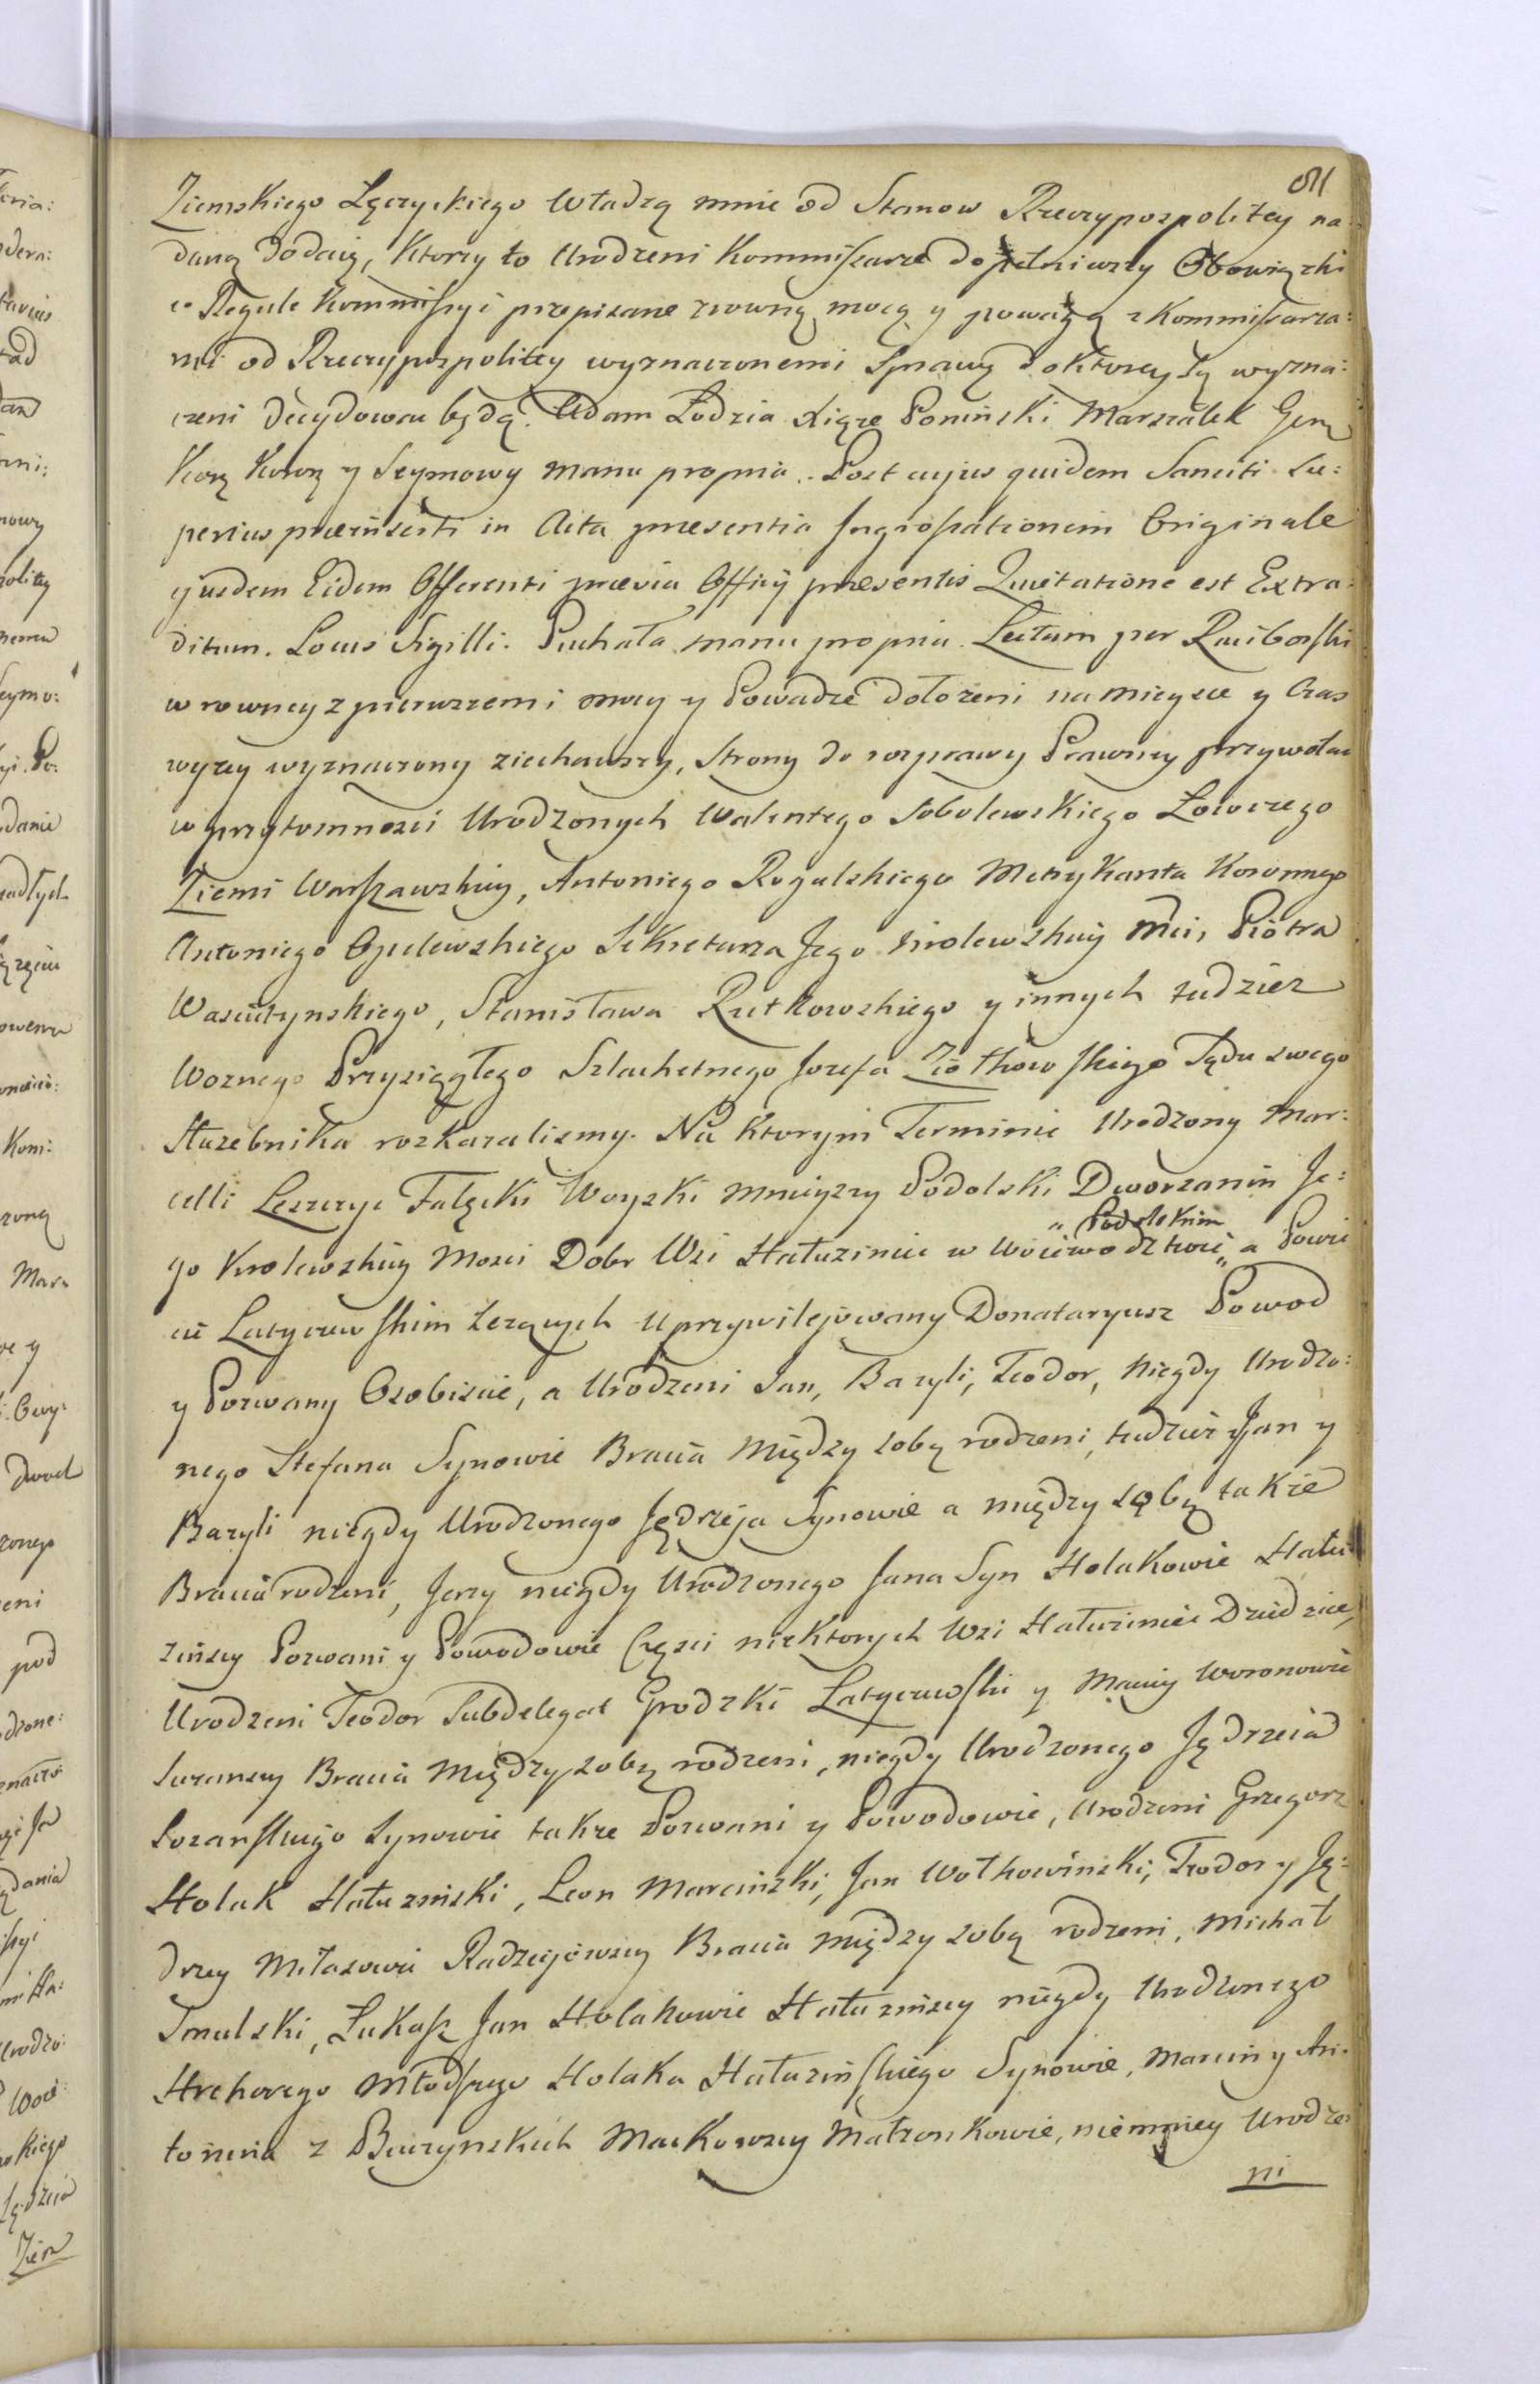 Ziemskiego Łęczyckiego Władzą mnie od Stanow Rzeczypospolitey na:
daną dodaię, Ktorzy to Urodzeni Kommissarze dopełniwszy Obowiązki
w Regule Kommissyi przepisane rowną mocą y powagą z Kommissarza:
mi od Rzeczypospolitey wyznaczonemi Sprawy do Ktorey są wyzna:
czeni decydować będą. Adam Łodzia Xiąze Poniński Marszałek Genz
Korz Koron y Seymowy manu propria. Post cujus quidem Sanciti Su:
perius præinserti in Acta præsentia Ingrossationem Originale
ejusdem Eidem Offerenti prævia Officij præsentis Quietatione est Extra:
ditum. Locus Sigilli. Puchała manu propria. Lectum per Raciborski
w rowney z pierwszemi mocy y Powadze dołożeni na mieysce y Czas
wyzey wyznaczony ziechawszy, Strony do rozprawy Prawney przywołać
w przytomnosci Urodzonych Walentego Sobolewskiego Łowczego
Ziemi Warszawskiey, Antoniego Rogalskiego Metrykanta Koronnego
Antoniego Opulewskiego Sekretarza Jego Krolewskiey Mci, Piotra
Wasiutynskiego, Stanisława Rutkowskiego y innych tudziez
Woznego Przysięgłego Szlachetnego Jozefa Ziołkowskiego Sądu swego
Służebnika rozkazalismy. Na Ktorym Terminie Urodzony Mar:
celli Leszczyc Falęcki Woyski mnieyszy Podolski Dworzanin Je:
go Krolewskiey Mosci Dobr Wsi Hałuzinie w Woiewodztwie „ Podolskim „ a Powie
cie Latyczewskim lezących Uprzywilejowany Donataryusz Powod
y Pozwany Osobiscie, a Urodzeni Jan, Bazyli, Teodor, niegdy Urodzo:
nego Stefana Synowie Bracia między sobą rodzeni, tudziez Jan y
Bazyli niegdy Urodzonego Jędrzeja Synowie a między sobą takze
Bracia rodzeni, Jerzy niegdy Urodzonego Jana Syn Holakowie Hału
zińscy Pozwani y Powodowie Częsci niektorych Wsi Hałuzinie Dziedzice,
Urodzeni Teodor Subdelegat Grodzki Latyczewski y Maciey Woronowie
Suzanscy Bracia między sobą rodzeni, niegdy Urodzonego Jędrzeia
Sozanskiego Synowie takze Pozwani y Powodowie, Urodzeni Grzegorz
Holak Hałuzinski, Leon Marcinski, Jan Wołkowinski, Teodor y Ję:
drzey Miłasowie Radziejowscy Bracia między sobą rodzeni, Michał
Smulski, Łukasz Jan Holakowie Hałuzinscy niegdy Urodzonego
Hrehorego Młodszego Holaka Hałuzinskiego Synowie, Marcin y An:
tonina z Buczynskich Mackowscy Małzonkowie, niemniey Urodze:
ni